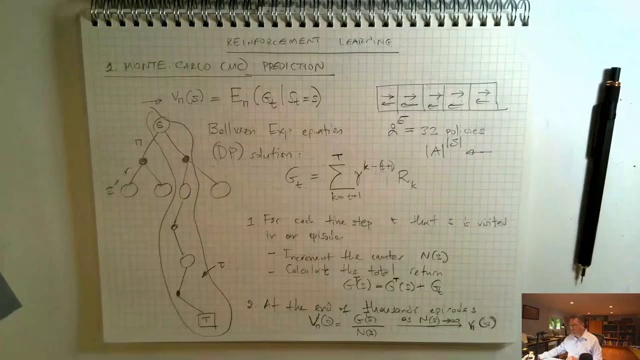 REINFORCEMENT LEARNING
1. MONTE CARLO (MC) PREDICTION
→ Vπ(s) = Eπ(Gt | St = s)
Bellman Exp. equation
(DP) solution:
2^5 = 32 policies
|A|^|S| ←
Gt = Σ_{k=t+1}^{T} γ^{k-(t+1)} Rk
S
π
r
s'
τ
T
1 For each time step t that s is visited
in an episode
- Increment the counter N(s)
- Calculate the total return
G^T(s) = G^T(s) + Gt
2 At the end of thousands episodes
Vπ(s) = G(s) / N(s) as N(s)→∞ Vπ(s)